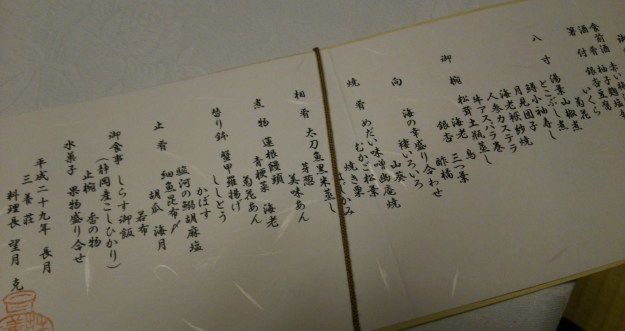 食前酒 柚子
酒肴
菊花
銀杏 いくら
八寸
湯葉山椒煮
とこぶし煮
鱒小袖寿し
月見団子
海老松風
人参カステラ
牛アスパラ巻
御椀
松茸土瓶蒸し
海老 三つ葉
銀杏 酢橘
向
海の幸盛り合わせ
褄いろいろ
山葵
焼肴
めだい味噌鶏庵焼
むかご松葉
焼き栗
はじかみ
相肴
太刀魚黒米蒸し
芽葱
美味あん
煮物
蓮根饅頭
青梗菜 海老
菊花あん
替り鉢
蟹甲羅揚げ
ししとう
かぼす
駿河の鰯胡麻塩
止肴
細魚昆布〆
胡瓜 海月
若布
御食事
しらす御飯
(静岡産こしひかり)
止椀 香の物
水菓子
果物盛り合せ
平成二十九年 長月
三養荘
料理長 望月 克